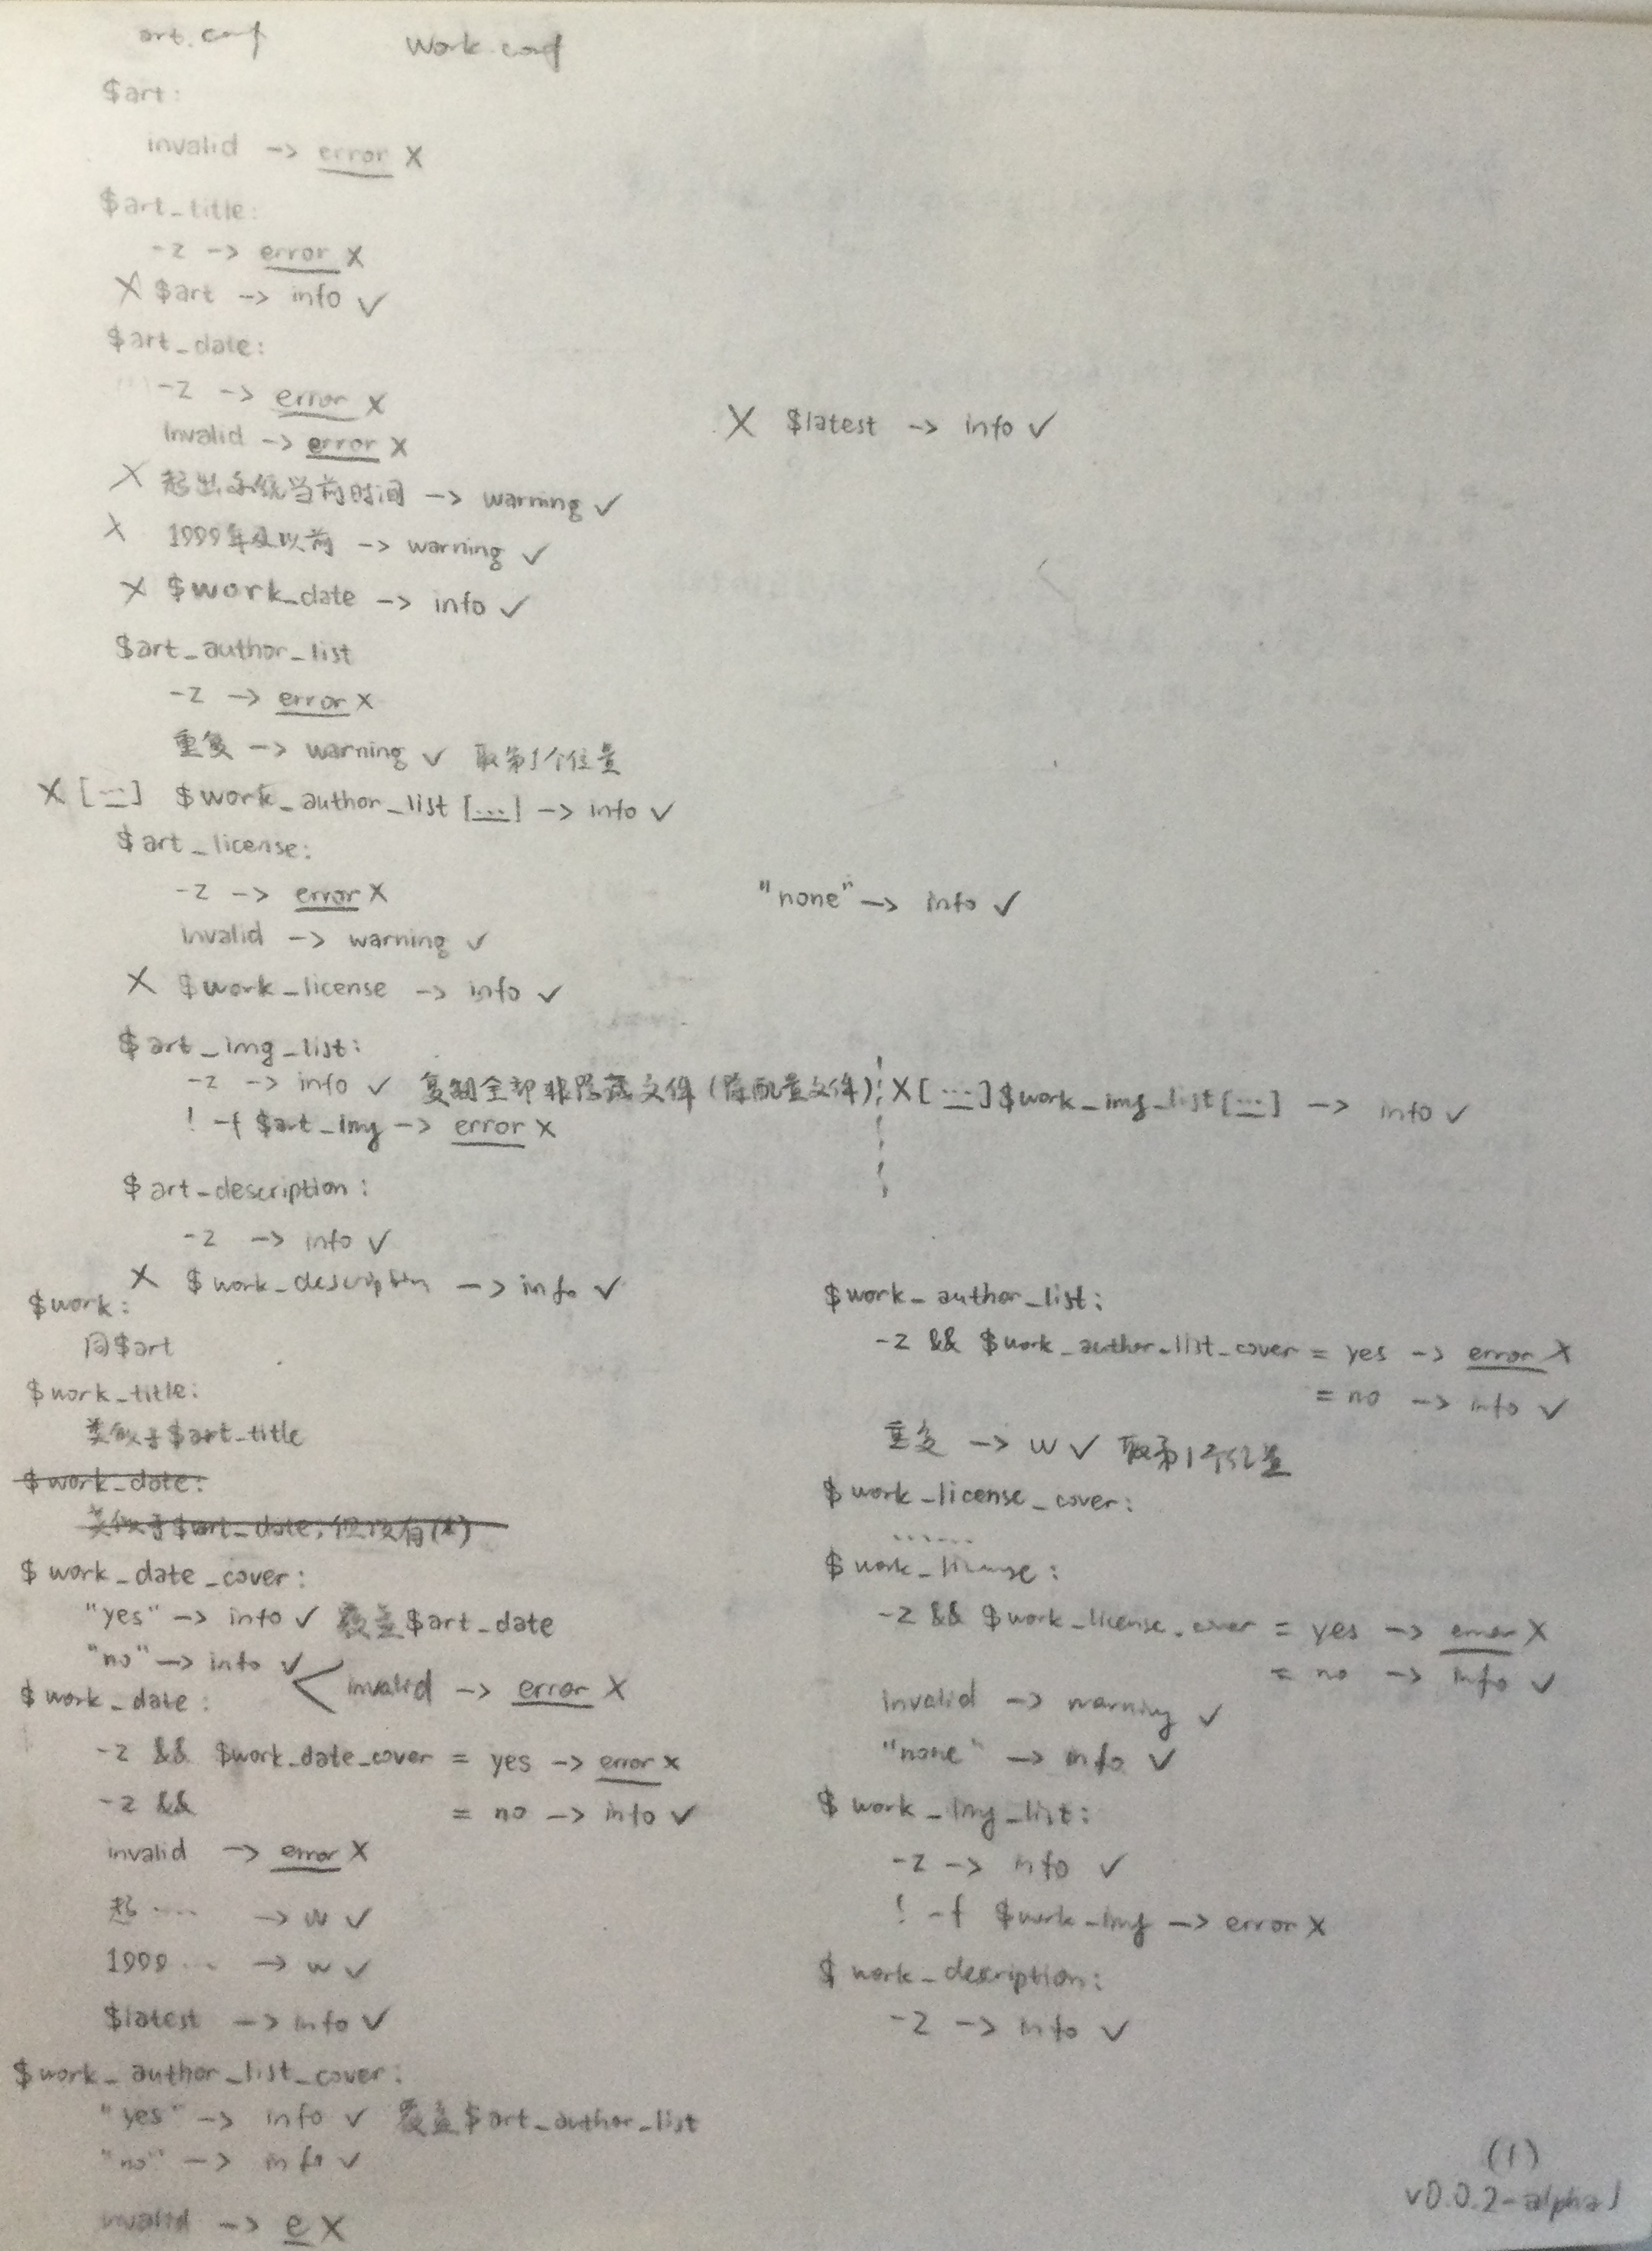 art.conf
work.conf
$art:
invalid -> error X
$art_title:
-z -> error X
X $art -> info ✓
$art_date:
-z -> error X
invalid -> error X
X $latest -> info ✓
X 超出系统当前时间 -> warning ✓
X 1999年及以前 -> warning ✓
X $work_date -> info ✓
$art_author_list
-z -> error X
重复 -> warning ✓ 取第1个位置
X [...] $work_author_list [...] -> info ✓
$art_license:
-z -> error X
"none" -> info ✓
invalid -> warning ✓
X $work_license -> info ✓
$art_img_list:
-z -> info ✓ 复制全部非隐藏文件(除配置文件); X [...] $work_img_list [...] -> info ✓
! -f $art_img -> error X
$art_description:
-z -> info ✓
X $work_description -> info ✓
$work:
同$art
$work_title:
类似于$art_title
$work_date:
类似于$art_date,但没有(*)
$work_date_cover:
"yes" -> info ✓ 覆盖$art_date
"no" -> info ✓
invalid -> error X
$work_date:
-z && $work_date_cover = yes -> error X
-z && = no -> info ✓
invalid -> error X
超 ···· -> w ✓
1999 ... -> w ✓
$latest -> info ✓
$work_author_list_cover:
"yes" -> info ✓ 覆盖$art_author_list
"no" -> info ✓
invalid -> e X
$work_author_list:
-z && $work_author_list_cover = yes -> error X
= no -> info ✓
重复 -> w ✓ 取第1个位置
$work_license_cover:
......
$work_license:
-z && $work_license_cover = yes -> error X
= no -> info ✓
invalid -> warning ✓
"none" -> info ✓
$work_img_list:
-z -> info ✓
! -f $work_img -> error X
$work_description:
-z -> info ✓
(1)
v0.0.2-alpha1